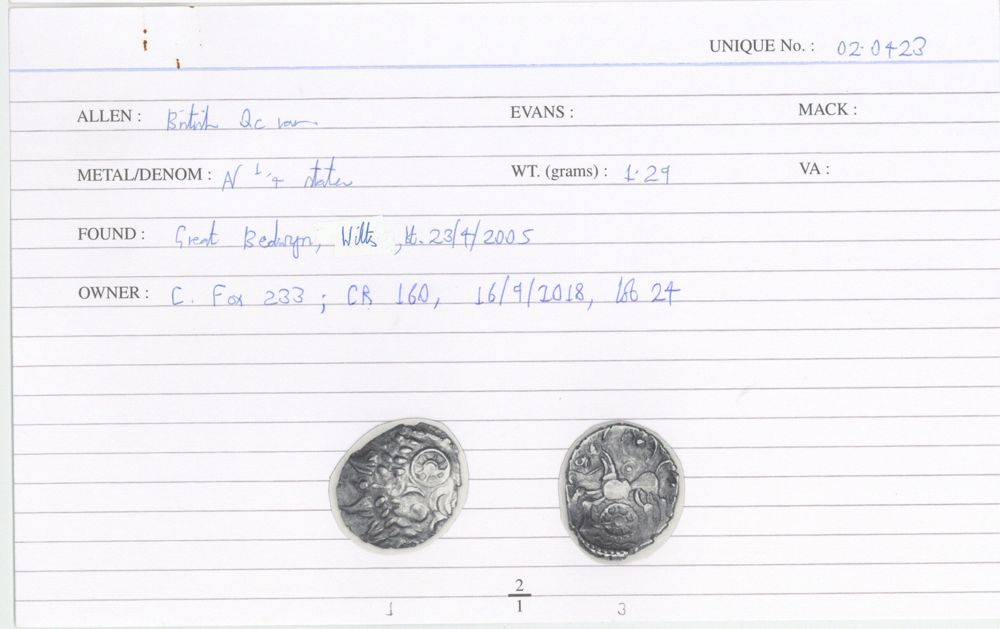 UNIQUE No. : 02.0423
ALLEN : British Qc var. EVANS : MACK :
METAL/DENOM : N 1/4 stater WT. (grams) : 1.29 VA :
FOUND : Great Bedwyn, Wilts, b. 23/4/2005
OWNER : C. Fox 233 ; CR 160, 16/9/2018, lot 24
2
1
1 3